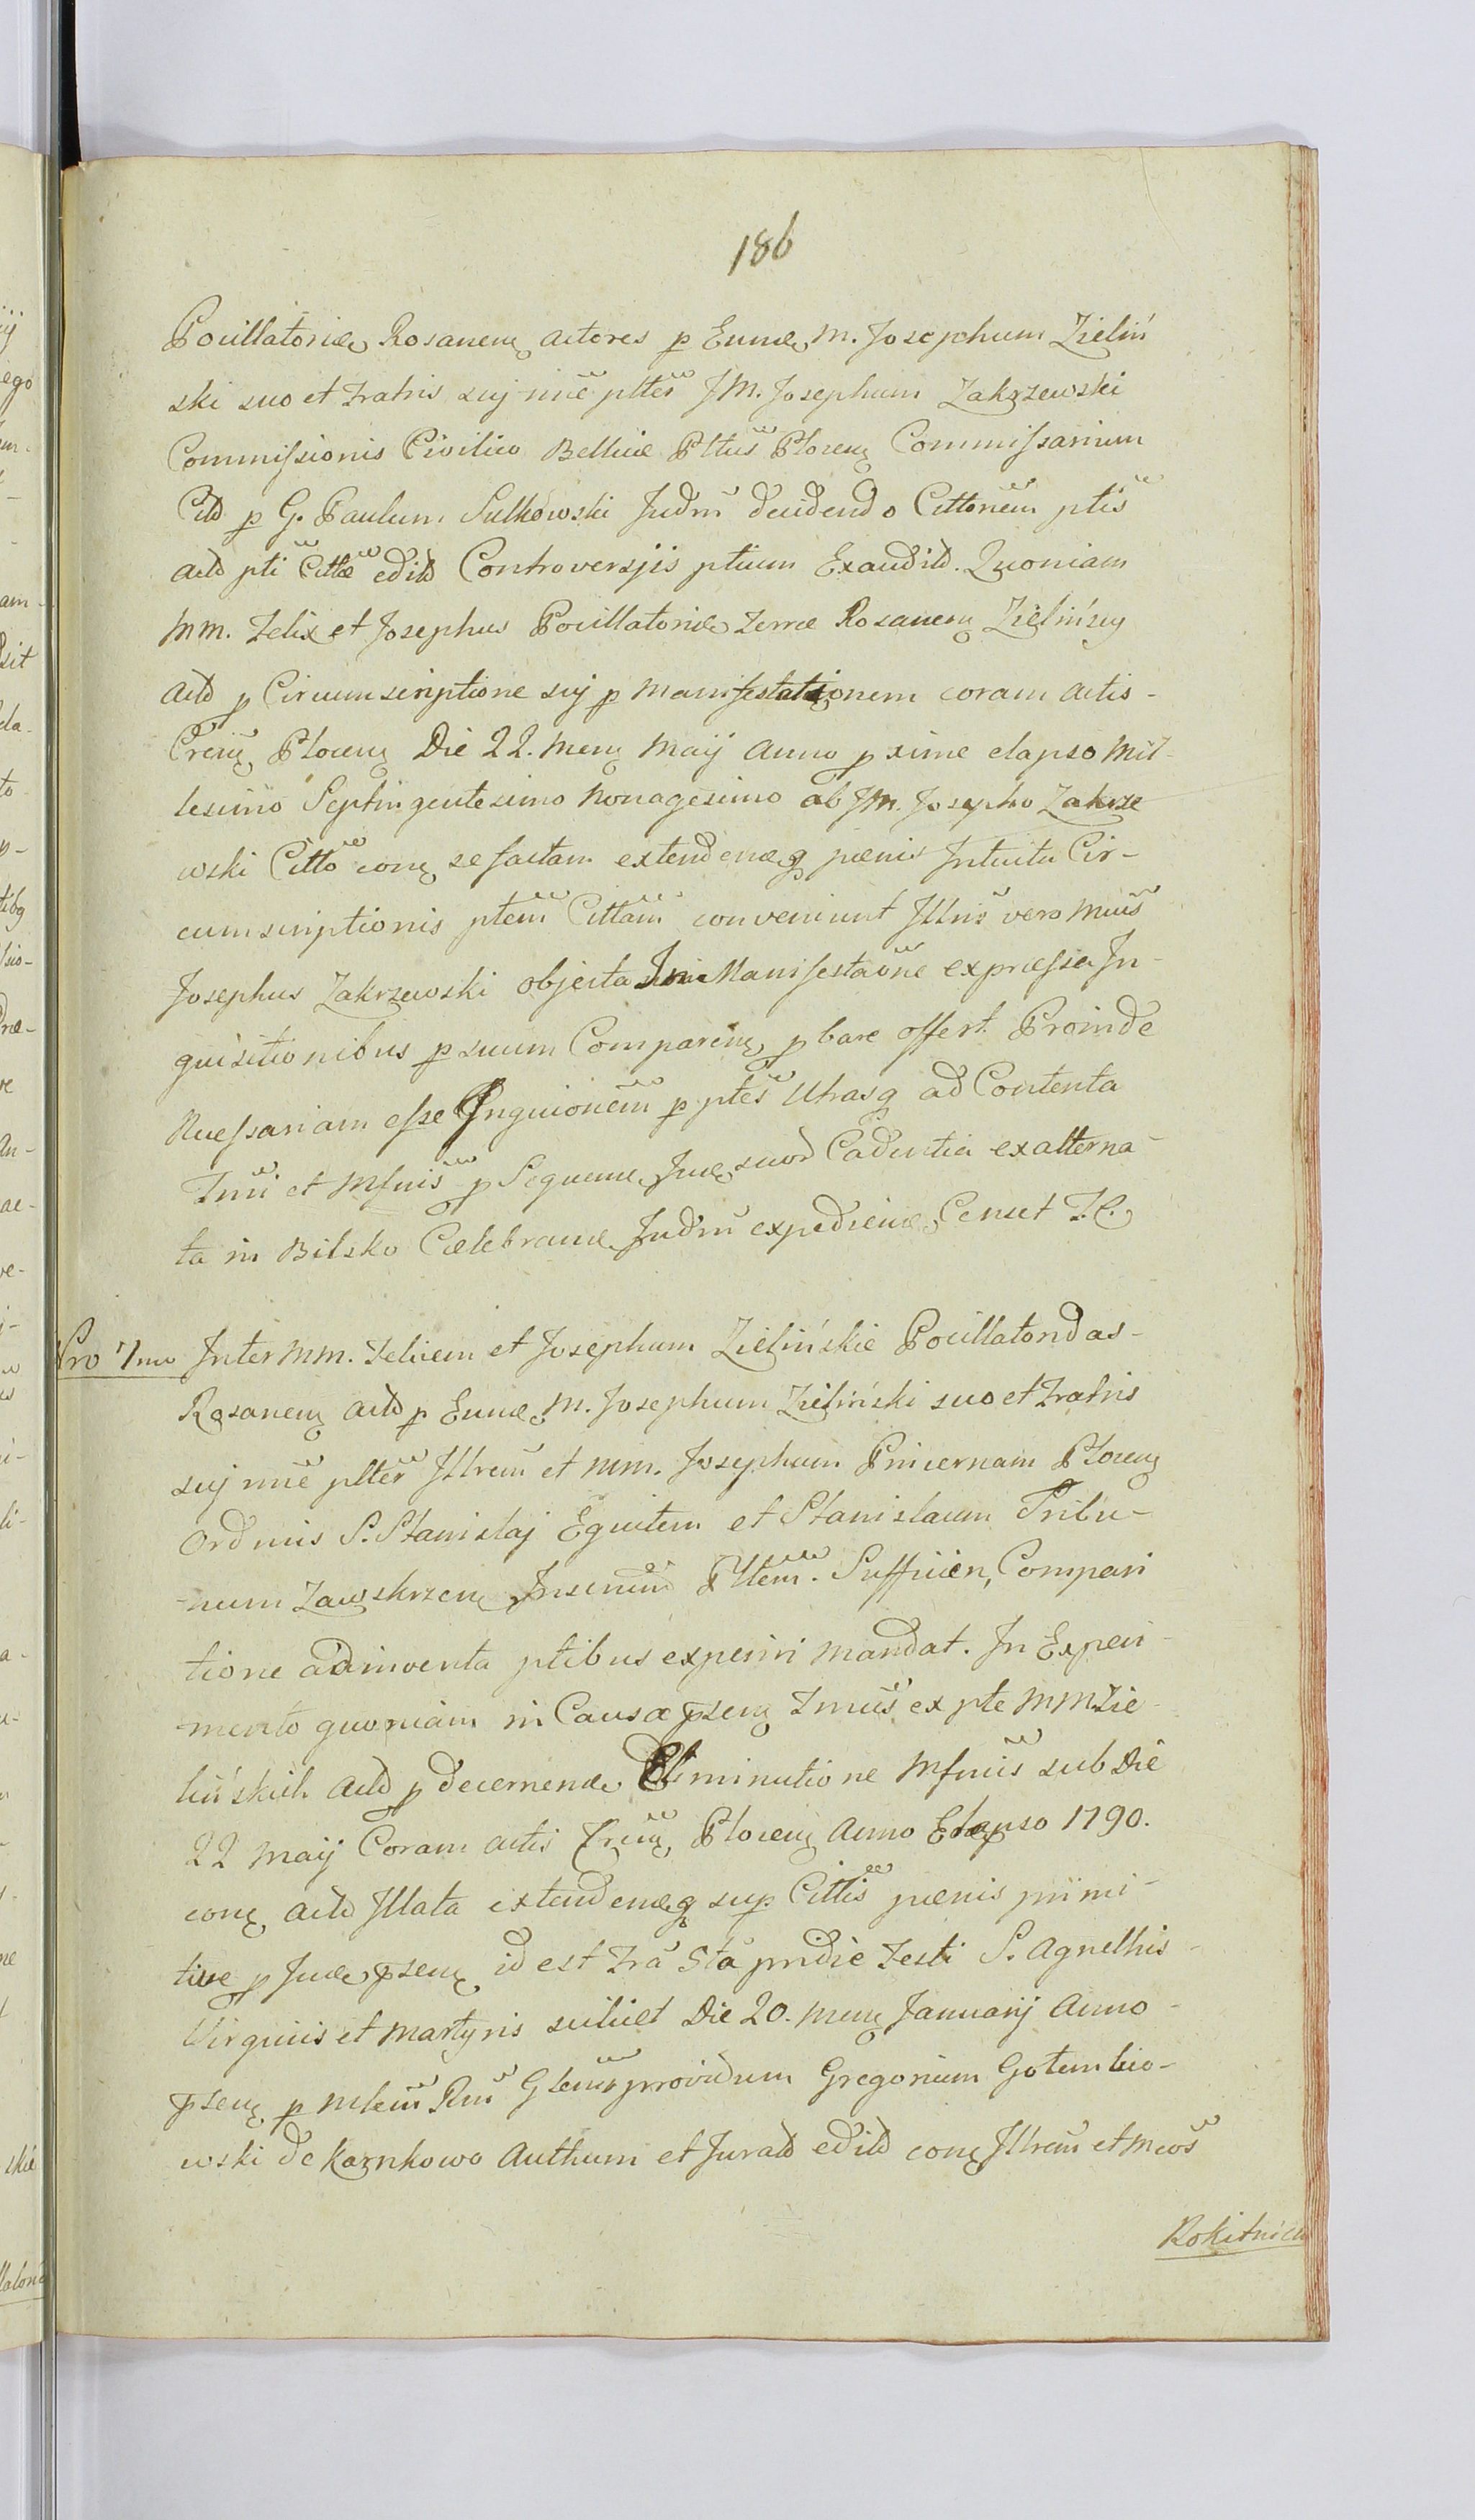 186
Pocillatoridæ Rosanens actores p Eundē M. Josephum Zieliń
ski suo et Fratris suj nnē pltēr JM. Josephum Zakrzewski
Commissionis Civilico Bellicæ Pltūs Plocens Commissarium
Citd p G. Paulum Sulkowski Judm̄ decidendo Cittonēm ptis
actd pti Cittæ editd Controversjis ptium Exauditd. Quoniam
MM. Felix et Josephus Pocillatoridæ Terræ Rosanens Zielińscy
actd p Circumscriptione suj p Manifestationem coram actis-
Crens Plocens Die 22. mens Maij Anno p xime elapso Mil-
lesimo Septingentesimo Nonagesimo ab JM. Josepho Zakrze
wski Citto cons se factam extendendq pænis Intuitu Cir-
cumscriptionis ptem Cittām conveniunt Jllris vero Mcus
Josephus Zakrzewski objecta In Manifestaōne expræssa In-
quisitionibus p suum Comparens p bare offert. Proinde
Necessariam esse Inquionem p ptes Utrasq ad Contenta
Tm̄i et Mfnis p Sequend Jud suod Cadentia exalterna-
ta in Bilsko Celebrand Judm̄ expediend Censet T. C.
Pro 7mo Inter MM. Felicem et Josephum Zielińskie Pocillatorid as-
Rosanens actd p Eundē M. Josephum Zieliński suo et Fratris
suj nnē pltēr Jllrem et MM. Josephum Pincernam Plocens
Ordinis S. Stanislaj Equitem et Stanislaum Tribu-
num Zawskrzens Pltem. Sufficien, Compari
tione adinventa ptibus experiri mandat. In Experi-
mento quoniam in Causa pseng Tmūs ex pte MM Zie-
lińskich actd p decernendæ Eliminutione Mfnis sub Die
22 Maij Coram actis Crens, Plocens Anno Elapso 1790.
cons actd Jllata extendendq sup Cittis pænis primi-
tive p Jud pseng id est Fra 5ta pridie Festi S. Agnethis-
Virginis et Martyris scilicet Die 20. mens Januarij Anno-
pseng p Mlem Rni Glem providum Gregorium Gołembio-
wski de Karnkowo Authum et Juratd editd cons Jllrem et Mcos
Rokitnick